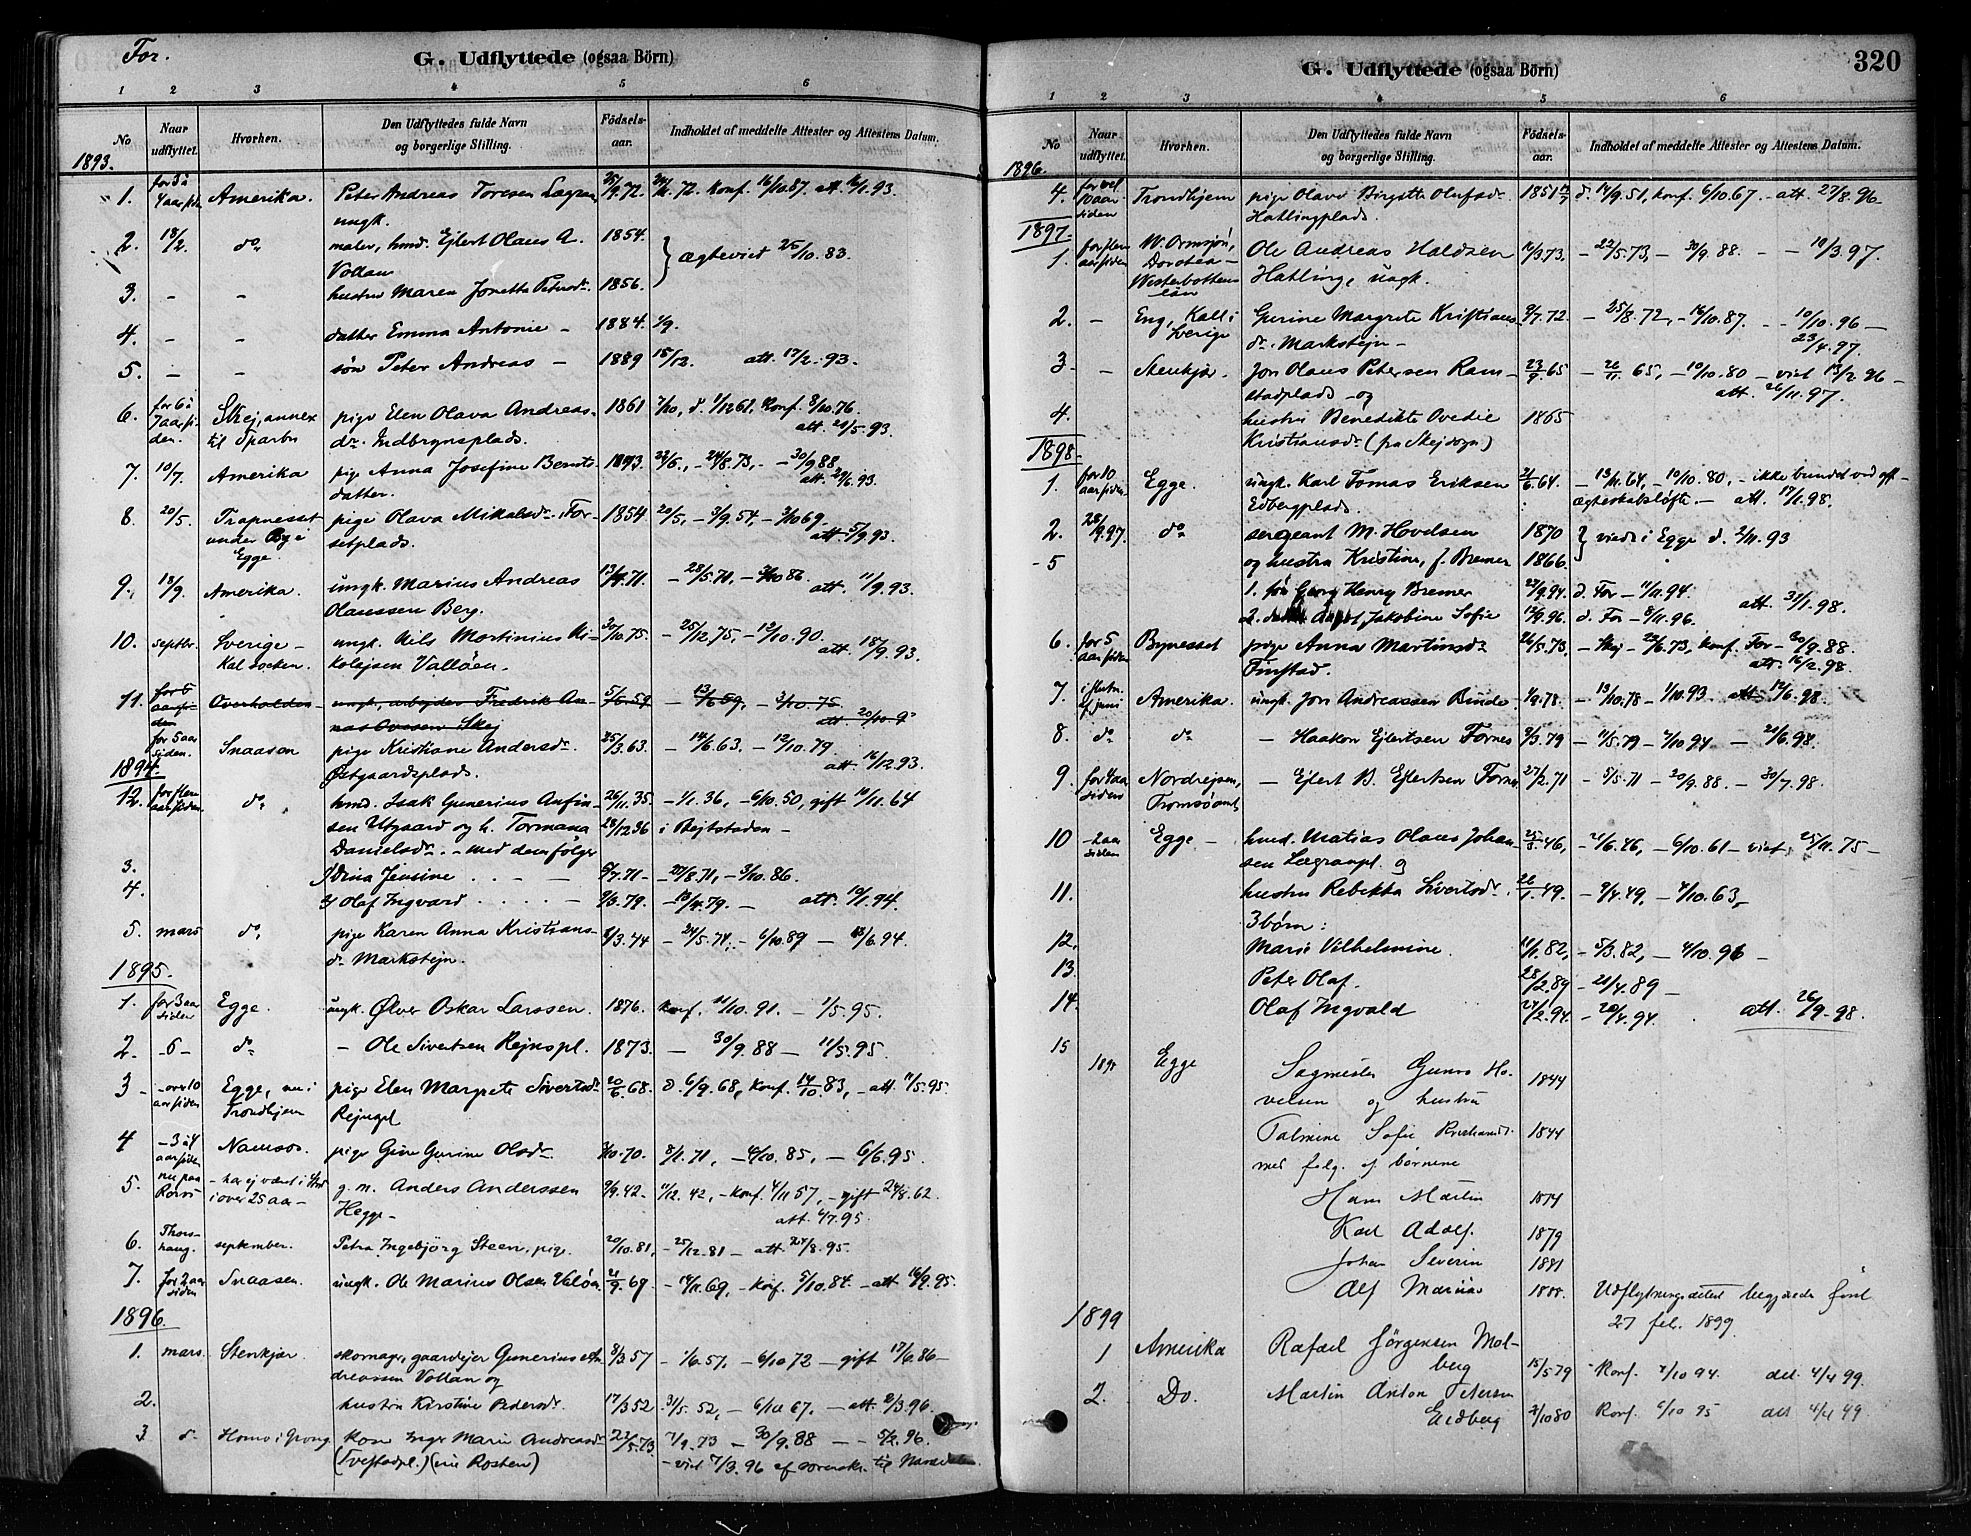 For.
G. Udflyttede (ogsaa Börn)
1 2 3 4 5 6
No
Naar udflyttet.
Hvorhen.
Den Udflyttedes fulde Navn og borgerlige Stilling.
Födselsaar.
Indholdet af meddelte Attester og Attestens Datum.
1893.
1. for 3 à Amerika. Peter Andreas Toresen 25/9 72. konf. 16/10 87. att. 93.
4 aar siden ungk.
2. 18/2. do malar, hmd. Ejlert Olaus A. 1854.
Vollan } ægteviet 25/10 83.
3. - - hustru Maren Jonetta Petersdr. 1856.
4. - - datter Emma Antonie - 1884. 1/9.
5. - - søn Peter Andreas - 1889 15/12. att. 17/2. 93.
6. for 6 à Skej, annex pige Elen Olava Andreas- 1861 7/10, d. 1/12 61, konf. 8/10 76.
7 aar si- til Sparbu dr. Indbrynsplads. att. 20/5. 93.
den.
7. 10/7. Amerika pig Anna Josefine Bernts- 1873. 22/6., - 24/8. 73, - 30/9 88
datter. att. 29/6. 93.
8. 20/5. Trapnesset pige Olava Mikalsdr. For- 1854 20/5, - 3/9. 54, - 3/10 69
under By i setplads. att. 5/9. 93.
Egge.
9. 13/9. Amerika. ungk. Marius Andreas 13/4. 71. - 28/5. 71, - 3/10 86. att. 11/9. 93.
Olaussen Berg.
10. septbr. Sverige - ungk. Nils Martinius Ni- 30/10. 75. - 25/12. 75, - 12/10. 90.
Kal socken. kolejsen Valløen. att. 18/9. 93.
11. for 6 Overhalden ungk. arbejder Fredrik An- 5/6. 59 - 13/6 59, - 3/10. 75
aar si- nas Ovesen Skej att 20/10. 9
den
for 5 aar Snaasen pige Kristiane Andersdr. 25/3. 63. - 14/6. 63. - 12/10. 79
siden. Østgaardsplads. att. 16/12. 93.
1894.
12. for flere do. hmd. Isak Gunerius Anfin- 26/11. 35. - 1/1. 36, - 6/10. 50, gift 10/11. 64
aar siden. sen Utgaard og h. Tormana 28/12 36 i Bejtstaden -
Danielsdr. - med dem følger
3. Idrina Jensine - 71 - 27/8. 71, - 3/10. 86.
4. Olaf Ingvard - 79. - 79. - att. 10/1. 94.
5. mars do, pige Karen Anna Kristians- 8/3. 44 - 24/5. 74, - 6/10. 89 - 13/6. 94.
dr. Markstejn.
1895.
1. for 3 aar Egge. ungk. Ølver Oskar Larssen. 1876. konf. 11/10. 91. - 1/5. 95.
siden
2. - 6 - do - Ole Sivertsen Rejnspl. 1873. - 30/9. 88 - 11/5. 95.
3 - over 10 Egge, nu i pige Elen Margrete Sivertsdr. 20/6. 68. d. 6/9. 68, konf. 14/10. 83, - att. 11/5. 95.
aar siden Trondhjem Rejnspl
4 - 3 à 4 Namsos. pige Guru Gurine Olsdr. 70. 8/1. 71, - 4/10. 85, - 6/6. 95.
aar siden
5. nu paa - har ej været i g. m. Anders Anderssen 9/9. 42. - 11/12. 42, - konf. 4/11 57, - gift 24/8. 62.
i over 25 aar - Hegge - att. 4/7. 95.
6. september. Petra Ingebjørg Steen, pige. 20/10. 81, - 25/12. 81 - att. 24/8. 95.
7. for 2 aar Snaasen. ungk. Ole Marius Olsen Valøen 21/9. 69 - 14/11. 69, - konf. 5/10. 84. - att. 16/9. 95.
siden
1896.
1. mars. Stenkjær. skomager, gaardejer Gunerius An- 8/3. 57 - 1/6. 57, - 6/10 72 - gift 17/6. 86 -
dreassen Vollan og
2. hustru Kirstine Pedersdr. 17/3 52. 31/5. 52, - 6/10 67, - att. 2/3. 96.
3 do Homo i Grong. Kone Inger Marie Andreasdr. 23/5. 73 7/9. 73 - 30/9. 88 - - 5/2. 96.
(Tvestadpl.) (nu Rosten) - viet 7/3. 96 af til
G. Udflyttede (ogsaa Börn)
320
1 2 3 4 5 6
No
Naar udflyttet.
Hvorhen.
Den Udflyttedes fulde Navn og borgerlige Stilling.
Födselsaar.
Indholdet af meddelte Attester og Attestens Datum.
1896.
4. for vel Trondhjem pige Olava Birgitte Olufsdr. 1851 d. 14/9. 51, konf. 6/10. 67 - att. 27/8. 96 -
10 aar siden Hatlingplads.
1897.
1. for flere W. Ormsjøn, Ole Andreas Haldsen 16/3 73. - 22/5. 73, - 30/9. 88. - - 10/3. 97.
aar siden Dorotea - Hatling, ungk.
Westerbottens
län
2. - Eng, Kall i Gurine Margrete Kristians- 9/7. 72. - 25/8. 72, - 16/10. 87. - - 10/10. 96 -
Sverige dr. Markstejn - 23/4. 97.
3 - Stenkjær. Jon Olaus Petersen Ram- 23/9. 65 - 26/11. 65, - 10/10. 80 - viet 13/2. 96 -
stadplads - og att. 26/11. 97.
4. hustru Benedikte Ovedie 1865
Kristiansdr. (fra Skejsogn)
1898.
1. for 10 Egge. ungk. Karl Tomas Eriksen 21/6. 64. - 13/11. 64, - 10/10. 80, - ikke bundet ved
aar siden. Edbergplads. ægteskabsløfte - att. 17/1. 98.
2. 28/9. 97. do sergeant M. Hovelsen 1870 } viede i Egge d. 2/11. 93
- 5 og hustru Kristine, f. Bremer 1866.
1. søn Georg Henry Bremer 27/9. 94. d. For - 1/11. 94.
2. Jakobine Sofie 12/9. 96. d. For - 8/11. 96. att. 31/1. 98.
6. for 5 Bynesset pige Anna Martinsdr. 26/5. 73. - Skej - 23/6. 73, konf. For - 30/9. 88.
aar siden Finstad. att. 16/2. 98.
7. i slutn. Amerika. ungk. Jon Andreassen Binde 1/9. 78. - 13/10. 78 - 1/10. 93 att. 12/6. 98.
af juni
8. do do - Haakon Ejlertsen Fornes 9/3. 79 - 11/5. 79 - 7/10. 94 - 21/6. 98.
9. for 4 aar Nordrejsen, - Ejlert B. Ejlertsen Fornes 27/2. 71 - 5/5. 71 - 30/9. 88. - 30/7. 98.
siden Tromsø amt
10 - 2 aar Egge - hmd. Matias Olaus Johan- 25/3. 46, - 21/6. 46, - 6/10. 61 - viet 25/11. 75 -
siden sen Lægranpl. og
11. hustru Rebekka Sivertsdr. 26/1. 49. - 9/4. 49. - 4/10. 63, -
3 børn:
12. Marie Vilhelmine. 11/1. 82, - 5/3. 82, - 4/10. 96 -
13. Peter Olaf. 28/2. 89 - 21/4. 89 -
14. Olaf Ingvald 24/2. 94. - 20/4. 94. att. 26/9. 98.
15 1898 Egge Sagmester Gunerus Ho- 1844
velsen og hustru
Talmine Sofie 1844
med følg. af børnene
Hans Martin 1874
Karl Adolf. 1879
Johan Severin 1881
Alf Marius 1888. Udflytningsattest begjæredes først
27 feb. 1899
1899
1 Amerika Rafael Jørgensen Mol- 15/5 79 - Konf. 7/10 94. att. 4/4 99.
berg
2. Do. Martin Anton Petersen 2/10 80 Konf. 6/10 95 att 4/4 99
Eidberg